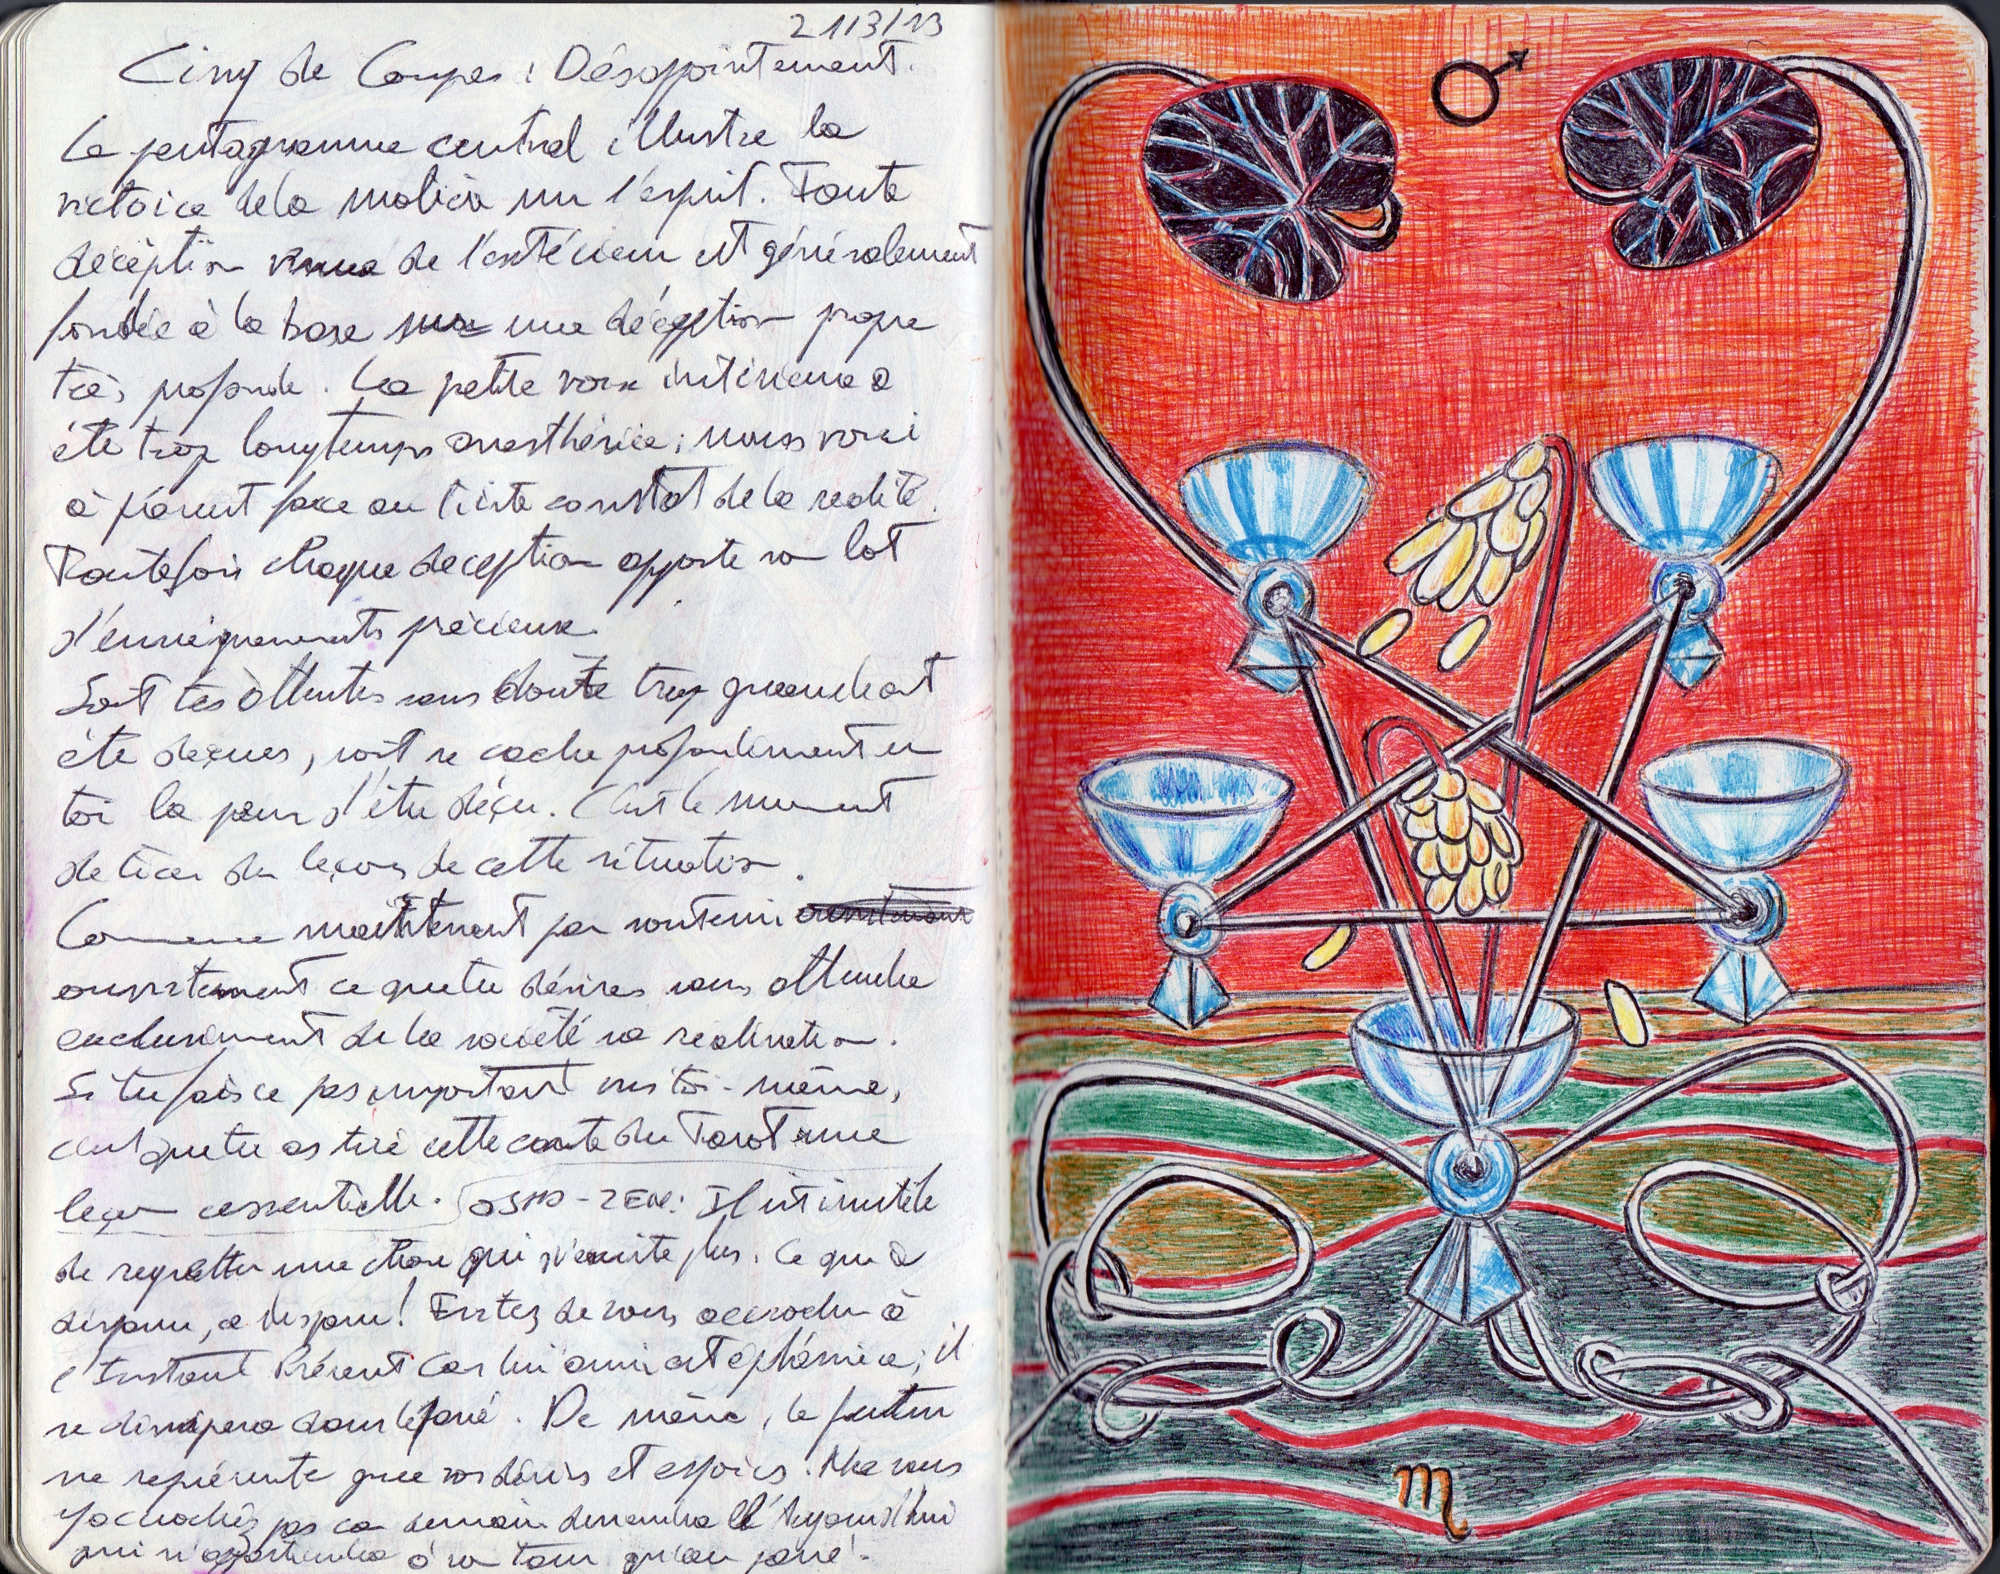 21/3/13
Cinq de Coupes : Désappointement.
Le pentagramme central illustre la
victoire de la matière sur l'esprit. Toute
déception venue de l'extérieur est généralement
fondée à la base sur une déception propre
très profonde. La petite voix intérieure a
été trop longtemps anesthésiée ; nous voici
à présent face au triste constat de la réalité.
Toutefois chaque déception apporte son lot
d'enseignements précieux.
Soit tes attentes sans doute trop grandes ont
été déçues, soit se cache profondément en
toi la peur d'être déçu. C'est le moment
de tirer des leçons de cette situation.
Commence maintenant par soutenir
ouvertement ce que tu désires sans attendre
exclusivement de la société sa réalisation.
Si tu fais ce pas important vers toi-même,
c'est que tu as tiré cette carte du Tarot une
leçon essentielle. OSHO-ZEN : Il est inutile
de regretter une chose qui n'existe plus. Ce qui a
disparu, a disparu ! Evitez de vous accrocher à
l'Instant Présent car lui aussi est éphémère ; il
se dissipera dans le passé. De même, le futur
ne représente que vos désirs et espoirs. Ne vous
y accrochez pas car demain deviendra l'Aujourd'hui
qui n'appartiendra à son tour qu'au passé.
♂
♏